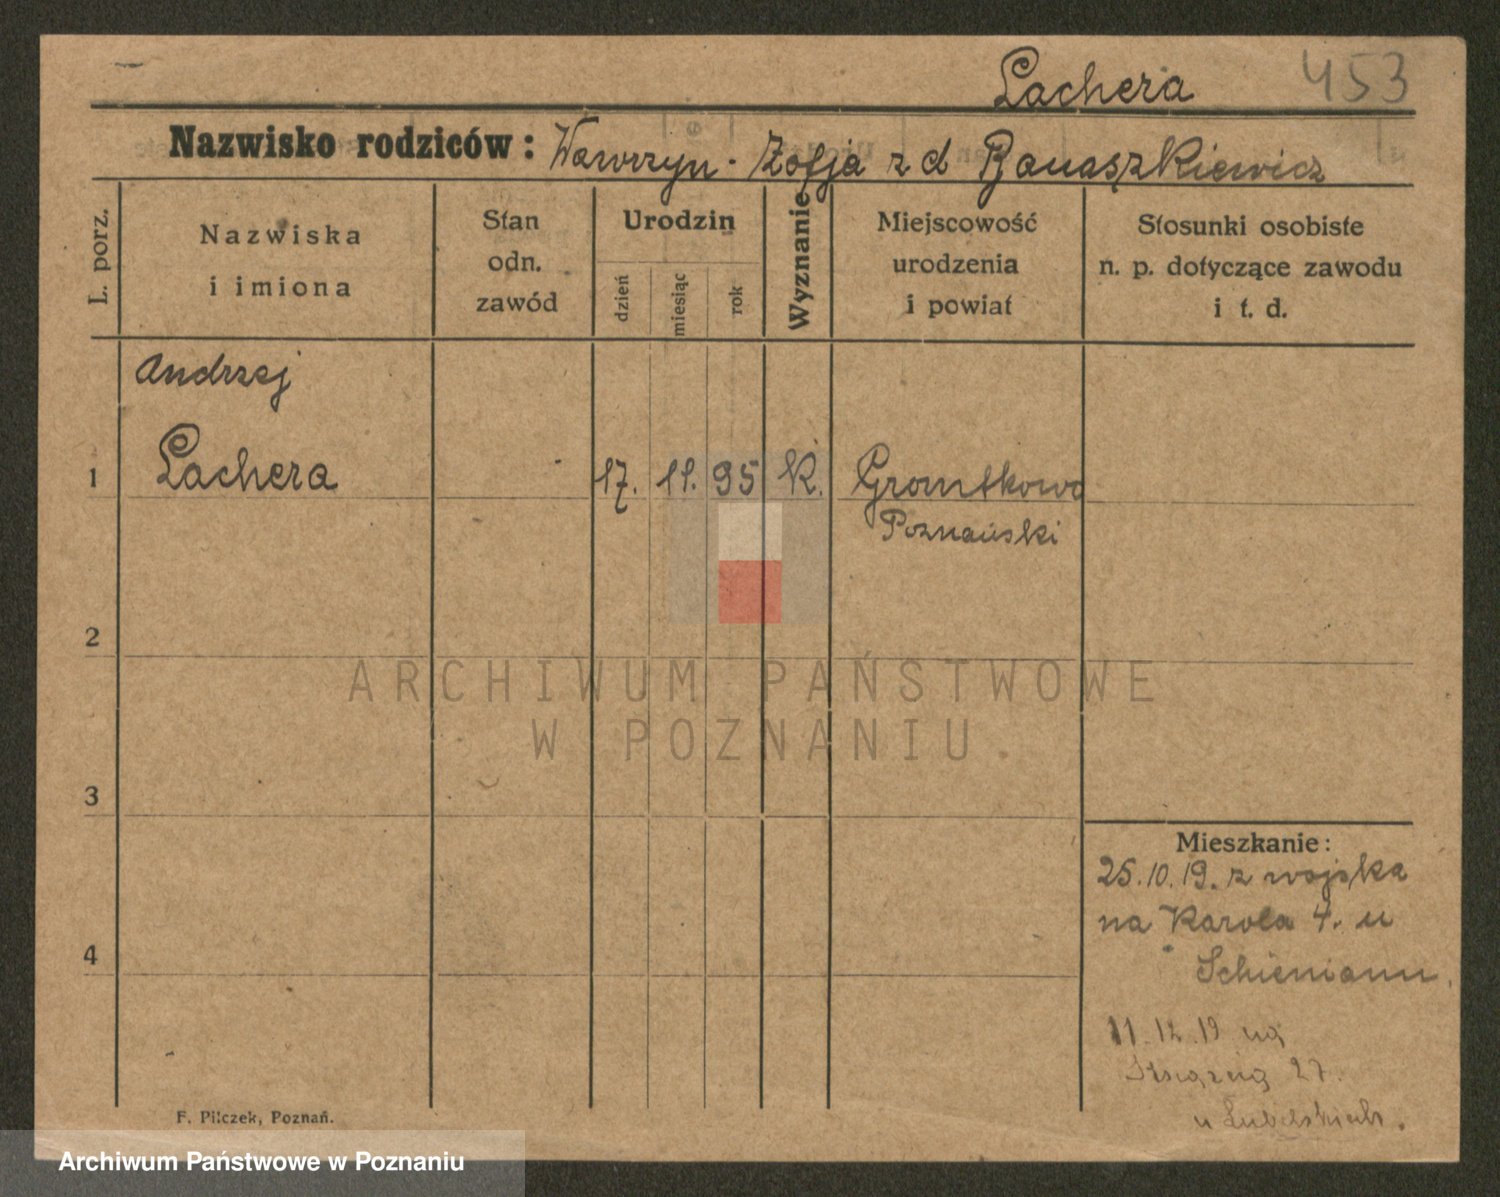 Lachera 453
Nazwisko rodziców: Wawrzyn - Zofja z d Banaszkiewicz
L. porz.
Nazwiska
i imiona
Stan
odn.
zawód
Urodzin
dzień
miesiąc
rok
Wyznanie
Miejscowość
urodzenia
i powiat
Stosunki osobiste
n. p. dotyczące zawodu
i t. d.
Andrzej
1 Lachera 17. 11. 95 K.
Poznański
2
ARCHIWUM PAŃSTWOWE
W POZNANIU
3
Mieszkanie:
25.10.19. z wojska
na Karola 4. u
4
Schiemann.
11.12.19 na
27.
u
F. Pilczek, Poznań.
Archiwum Państwowe w Poznaniu